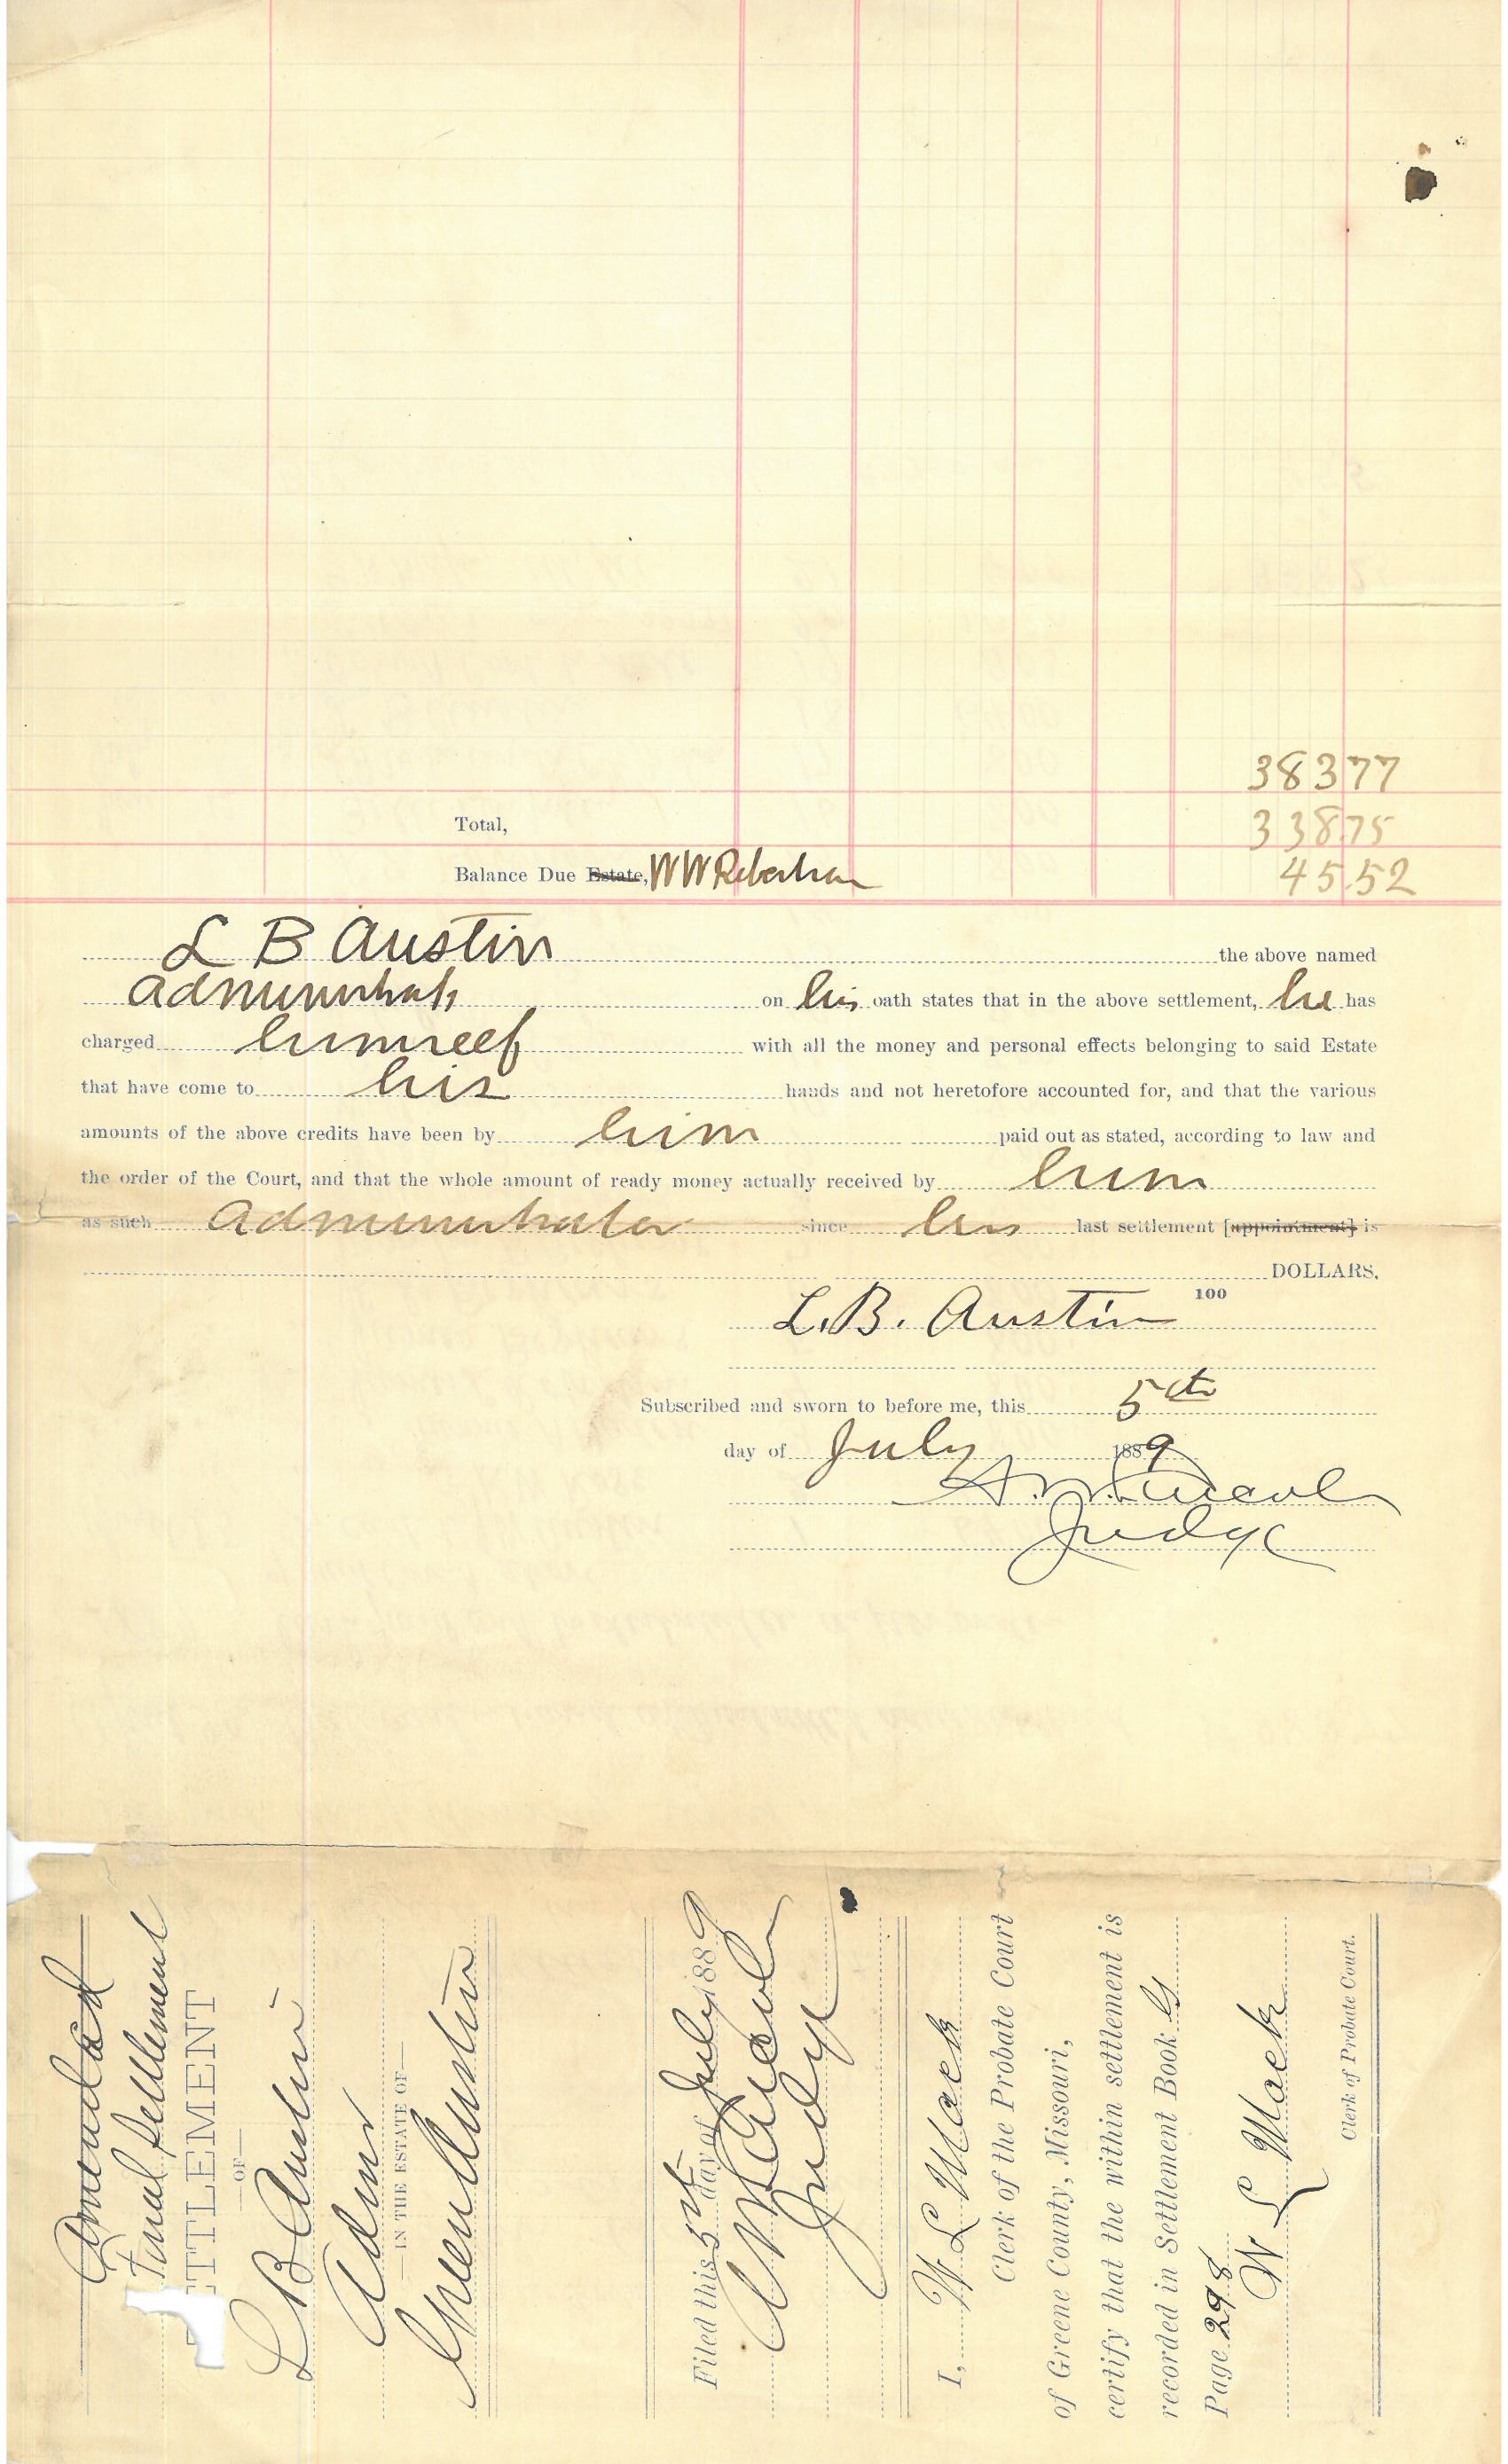 383 77
Total, 338.75
Balance Due Estate, W W Robertson 45.52
L B Austin the above named
Administrator on his oath states that in the above settlement, he has
charged himself with all the money and personal effects belonging to said Estate
that have come to his hands and not heretofore accounted for, and that the various
amounts of the above credits have been by him paid out as stated, according to law and
the order of the Court, and that the whole amount of ready money actually received by him
as such Administrator since his last settlement [appointment] is
DOLLARS.
100
L. B. Austin
Subscribed and sworn to before me, this 5th
day of July 1889
Judge
Amended
Final Settlement
TTLEMENT
—OF—
L B Austin
Admr
—IN THE ESTATE OF—
Green Austin
Filed this 5th day of July 1889
Judge
I, W L Mack
Clerk of the Probate Court
of Greene County, Missouri,
certify that the within settlement is
recorded in Settlement Book G
Page 298
W L Mack
Clerk of Probate Court.